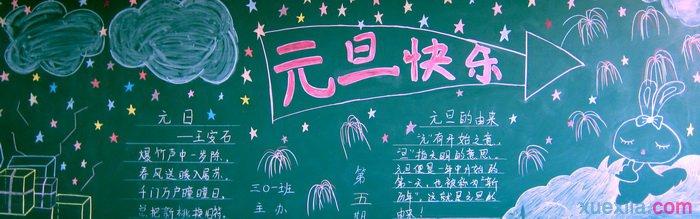 元旦快乐
元日
——王安石
爆竹声中一岁除，
春风送暖入屠苏。
千门万户曈曈日，
总把新桃换旧符。
三〇一班
主办
第五期
元旦的由来
“元”有开始之意，
“旦”指天明的意思。
元旦便是一年中开始的
第一天，也被称为“新
历年”，这就是元旦的
由来！
xuexila.com